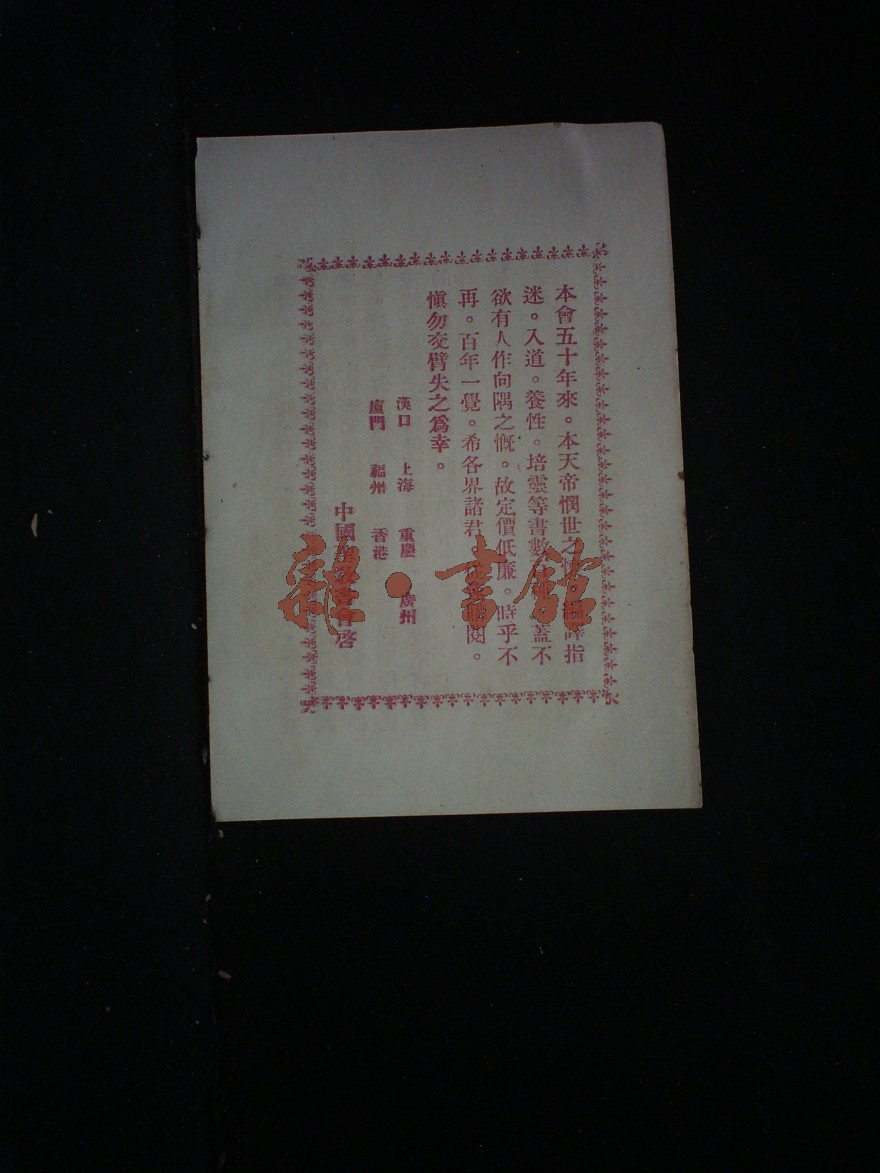 本會五十年來。本天帝憫世之 指
迷。入道。養性。培靈等書數 蓋不
欲有人作向隅之慨。故定價低廉。時乎不
再。百年一覺。希各界諸君 閱。
愼勿交臂失之爲幸。
漢口 上海 重慶 廣州
廈門 福州 香港
中國 書會啓
雜·書館